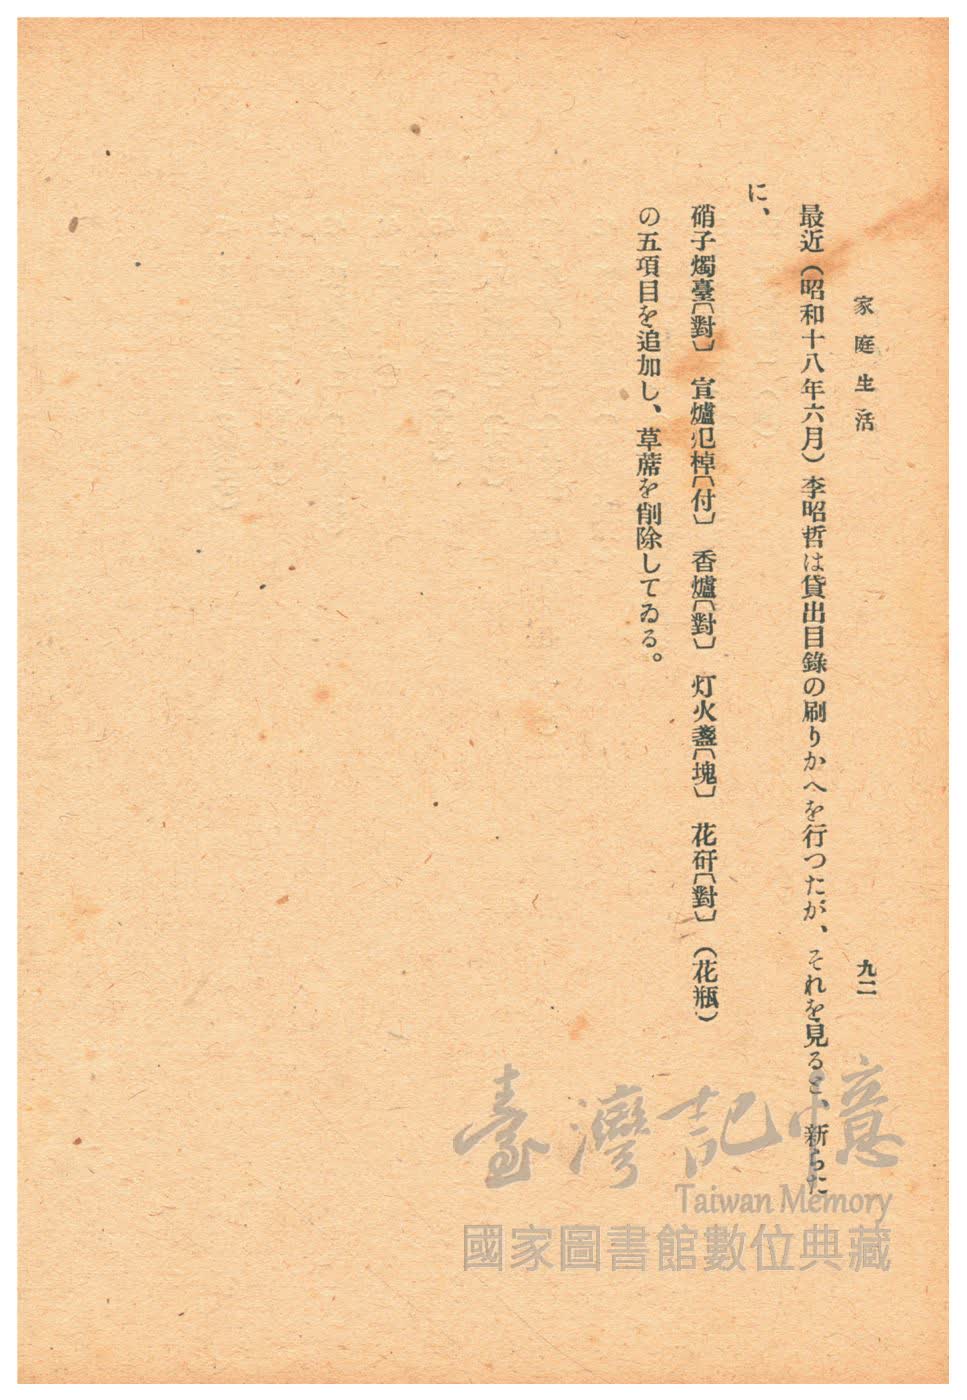 家庭生活
九二
最近（昭和十八年六月）李昭哲は貸出目錄の刷りかへを行つたが、それを見ると、新らた
に、
硝子燭臺〔對〕　宣爐氾棹〔付〕　香爐〔對〕　灯火盞〔塊〕　花矸〔對〕（花瓶）
の五項目を追加し、草蓆を削除してゐる。
臺灣記憶
Taiwan Memory
國家圖書館數位典藏